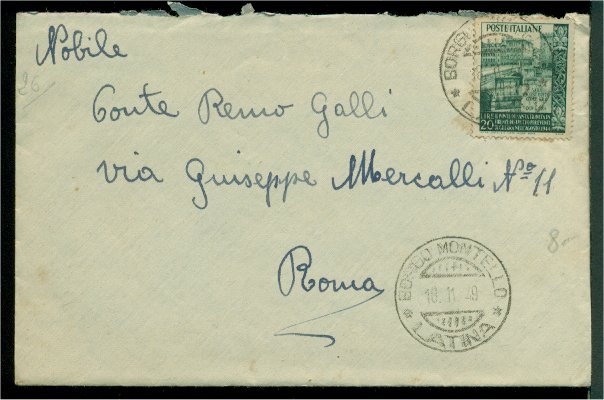 Nobile
Conte Remo Galli
via Giuseppe Mercalli N° 11
Roma
26
8
POSTE ITALIANE
LIRE
20
BORGO MONTELLO
18.11.49
* LATINA *